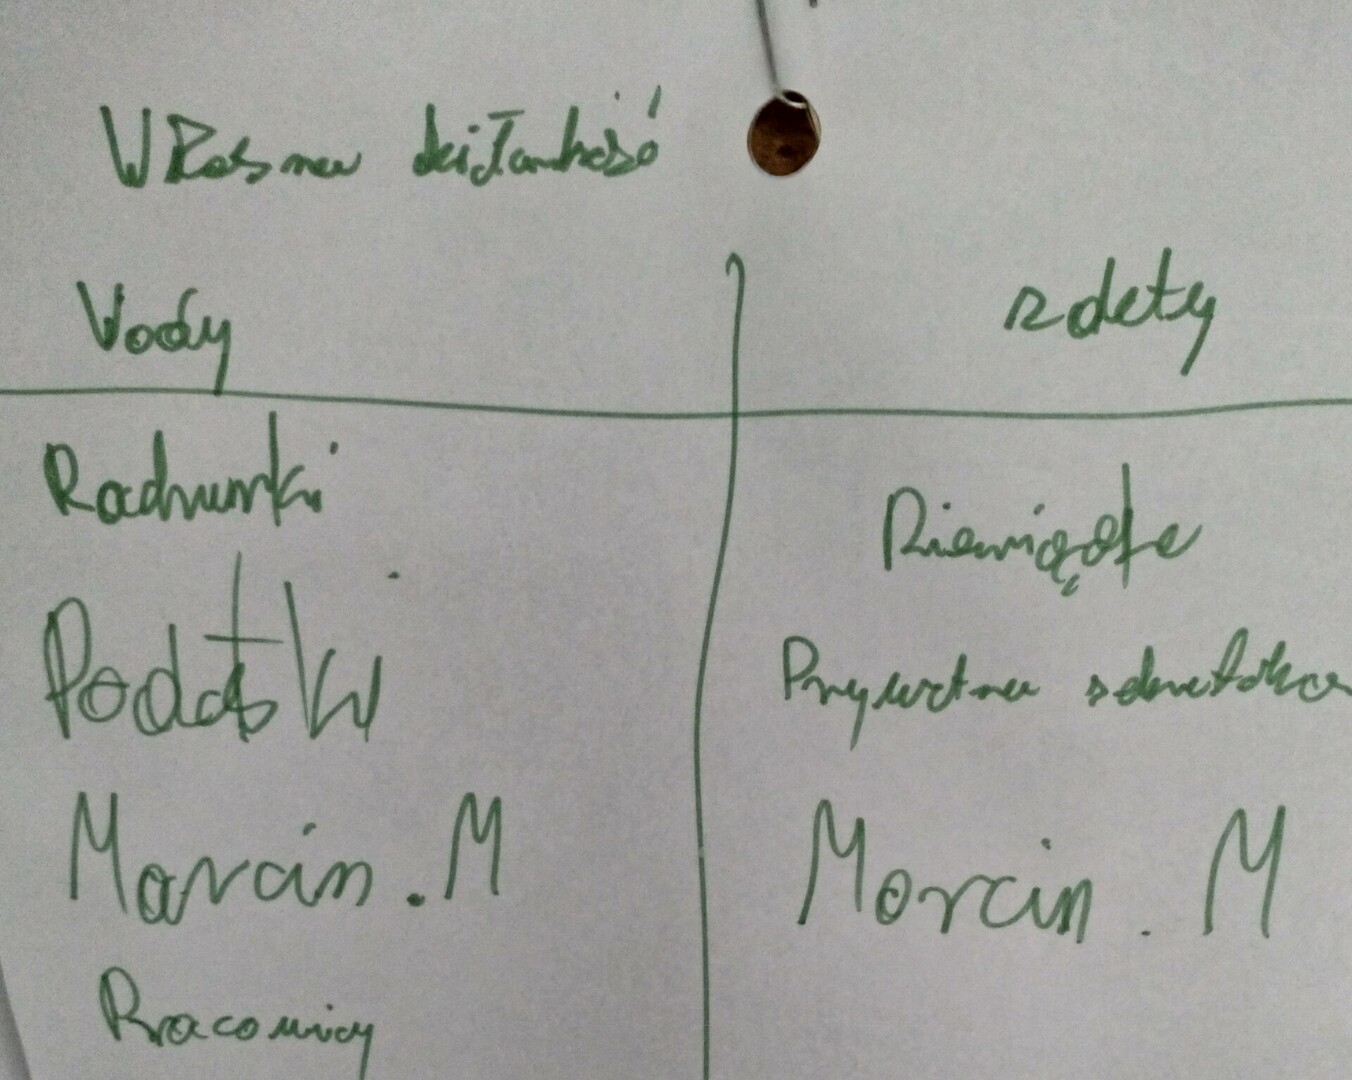 Własna działalność
Wady
zalety
Rachunki
Pieniądze
Podatki
Prywatna sekretarka
Marcin . M
Marcin . M
Pracownicy